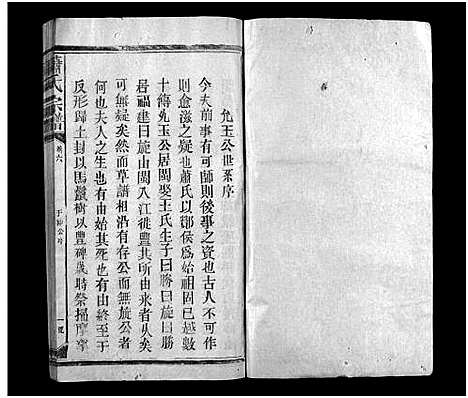 允玉公世系序
今夫前事有可師則後事之資也古人不可作
則愈滋之疑也蕭氏以酇侯為始祖已越數
十傳允玉公居閩娶王氏生子曰勝曰旋其
居福建曰旋由閩入江從豐其所由來者久矣
可無疑矣然而草譜相沿有存公而無旋公者
何也夫人之生也有由始其死也有由終至于
反形歸土封以馬鬣樹以豐碑歲時祭掃
蕭氏宗譜
卷六
公片
一